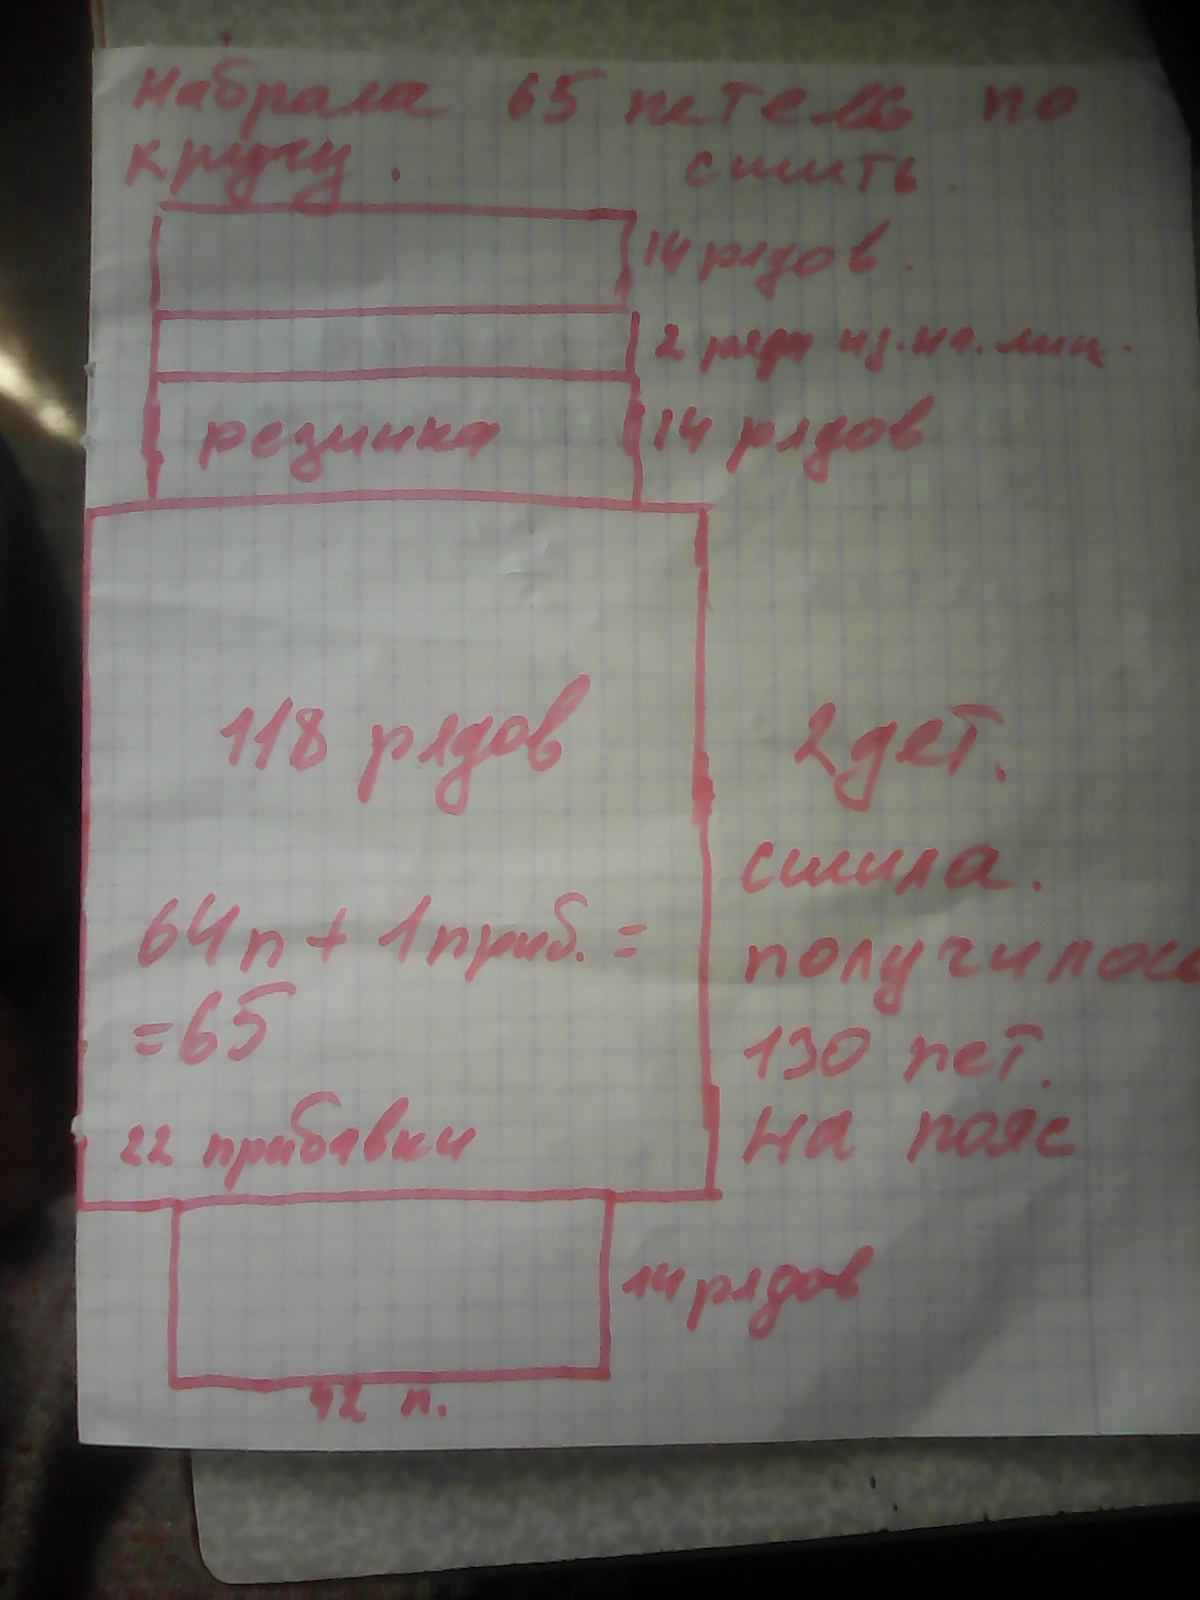 набрала 65 петель по
кругу. сшить.
14 рядов.
2 ряда из.на.лиц.
резинка 14 рядов
118 рядов 2 дет.
сшила.
64п + 1 приб. =
получилось
= 65
130 пет.
22 прибавки на пояс
14 рядов
42 п.